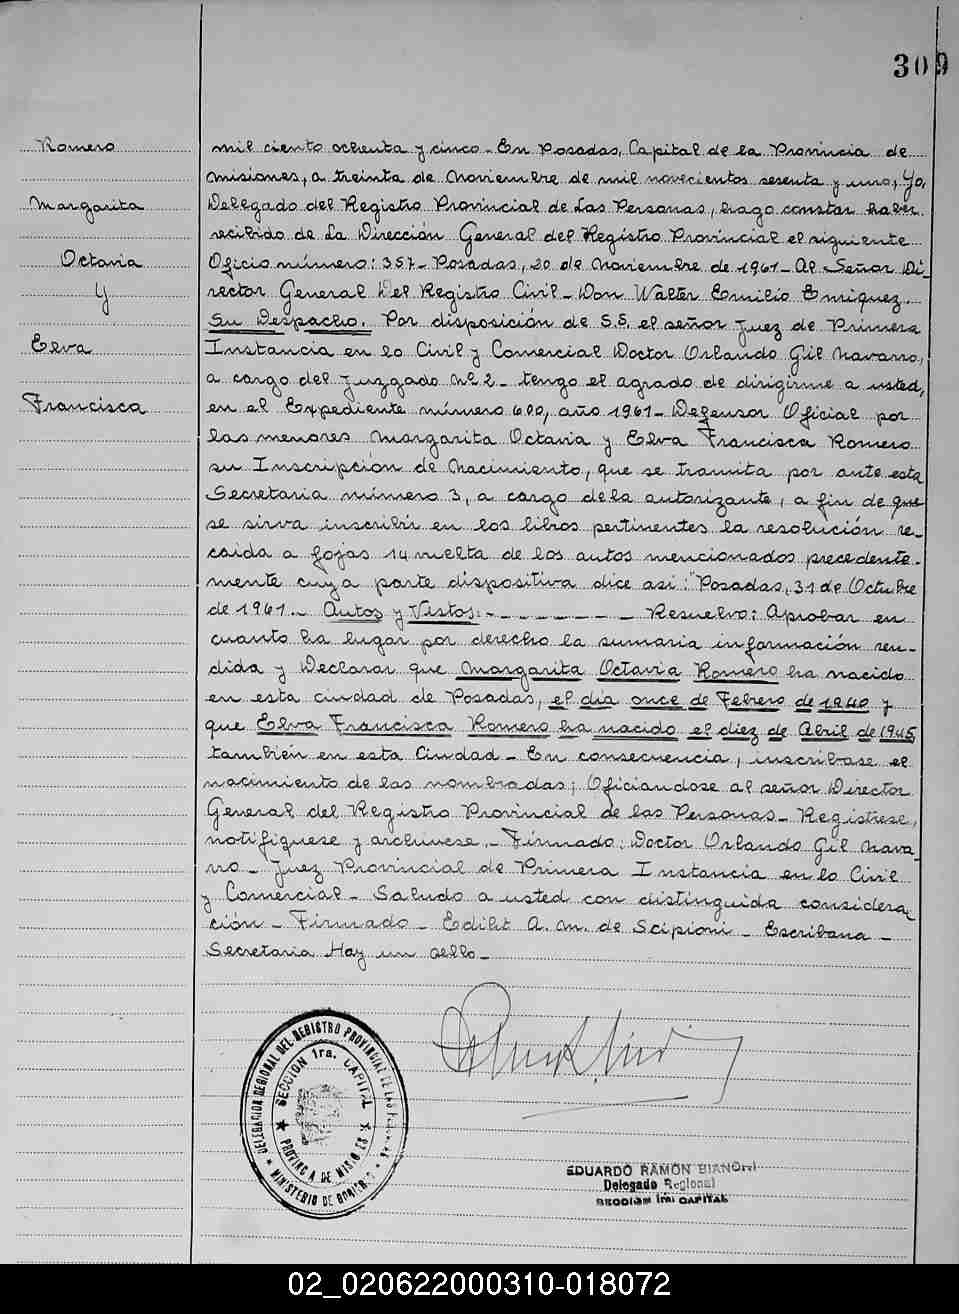 309
Romero
Margarita
Octavia
Y
Elva
Francisca
mil ciento ochenta y cinco - En Posadas, Capital de la Provincia de
misiones, a treinta de Noviembre de mil novecientos sesenta y uno, Yo,
Delegado del Registro Provincial de Las Personas, hago constar haber
recibido de La Dirección General del Registro Provincial el siguiente
Oficio número: 357- Posadas, 20 de Noviembre de 1961- Al Señor Di-
rector General Del Registro Civil - Don Walter Emilio Enriquez.
Su Despacho. Por disposición de S.S. el señor Juez de Primera
Instancia en lo Civil y Comercial Doctor Orlando Gil Navarro,
a cargo del Juzgado Nº 2 - tengo el agrado de dirigirme a usted,
en el Expediente número 600, año 1961- Defensor Oficial por
las menores Margarita Octavia y Elva Francisca Romero
su Inscripción de Nacimiento, que se tramita por ante esta
Secretaria número 3, a cargo de la autorizante, a fin de que
se sirva inscribir en los libros pertinentes la resolución re-
caida a fojas 14 vuelta de los autos mencionados precedente-
mente cuya parte dispositiva dice asi: "Posadas, 31 de Octubre
de 1961 - Autos y Vistos: - - - - - - - Resuelvo: Aprobar en
cuanto ha lugar por derecho la sumaria información ren-
dida y Declarar que Margarita Octavia Romero ha nacido
en esta ciudad de Posadas, el dia once de Febrero de 1940 y
que Elva Francisca Romero ha nacido el diez de Abril de 1945
también en esta Ciudad - En consecuencia, inscribase el
nacimiento de las nombradas; Oficiandose al señor Director
General del Registro Provincial de las Personas - Registrese,
notifiquese y archivese - Firmado: Doctor Orlando Gil Nava-
rro - Juez Provincial de Primera Instancia en lo Civil
y Comercial - Saludo a usted con distinguida considera-
ción - Firmado - Edilt A. M. de Scipioni - Escribana -
Secretaria Hay un sello -
DELEGACION REGIONAL DEL REGISTRO PROVINCIAL DE LAS
SECCION 1ra. CAPITAL
PROVINCIA DE MISIONES
MINISTERIO DE
EDUARDO RAMÓN BIANCHI
Delegado Regional
SECCION 1ra CAPITAL
02_020622000310-018072